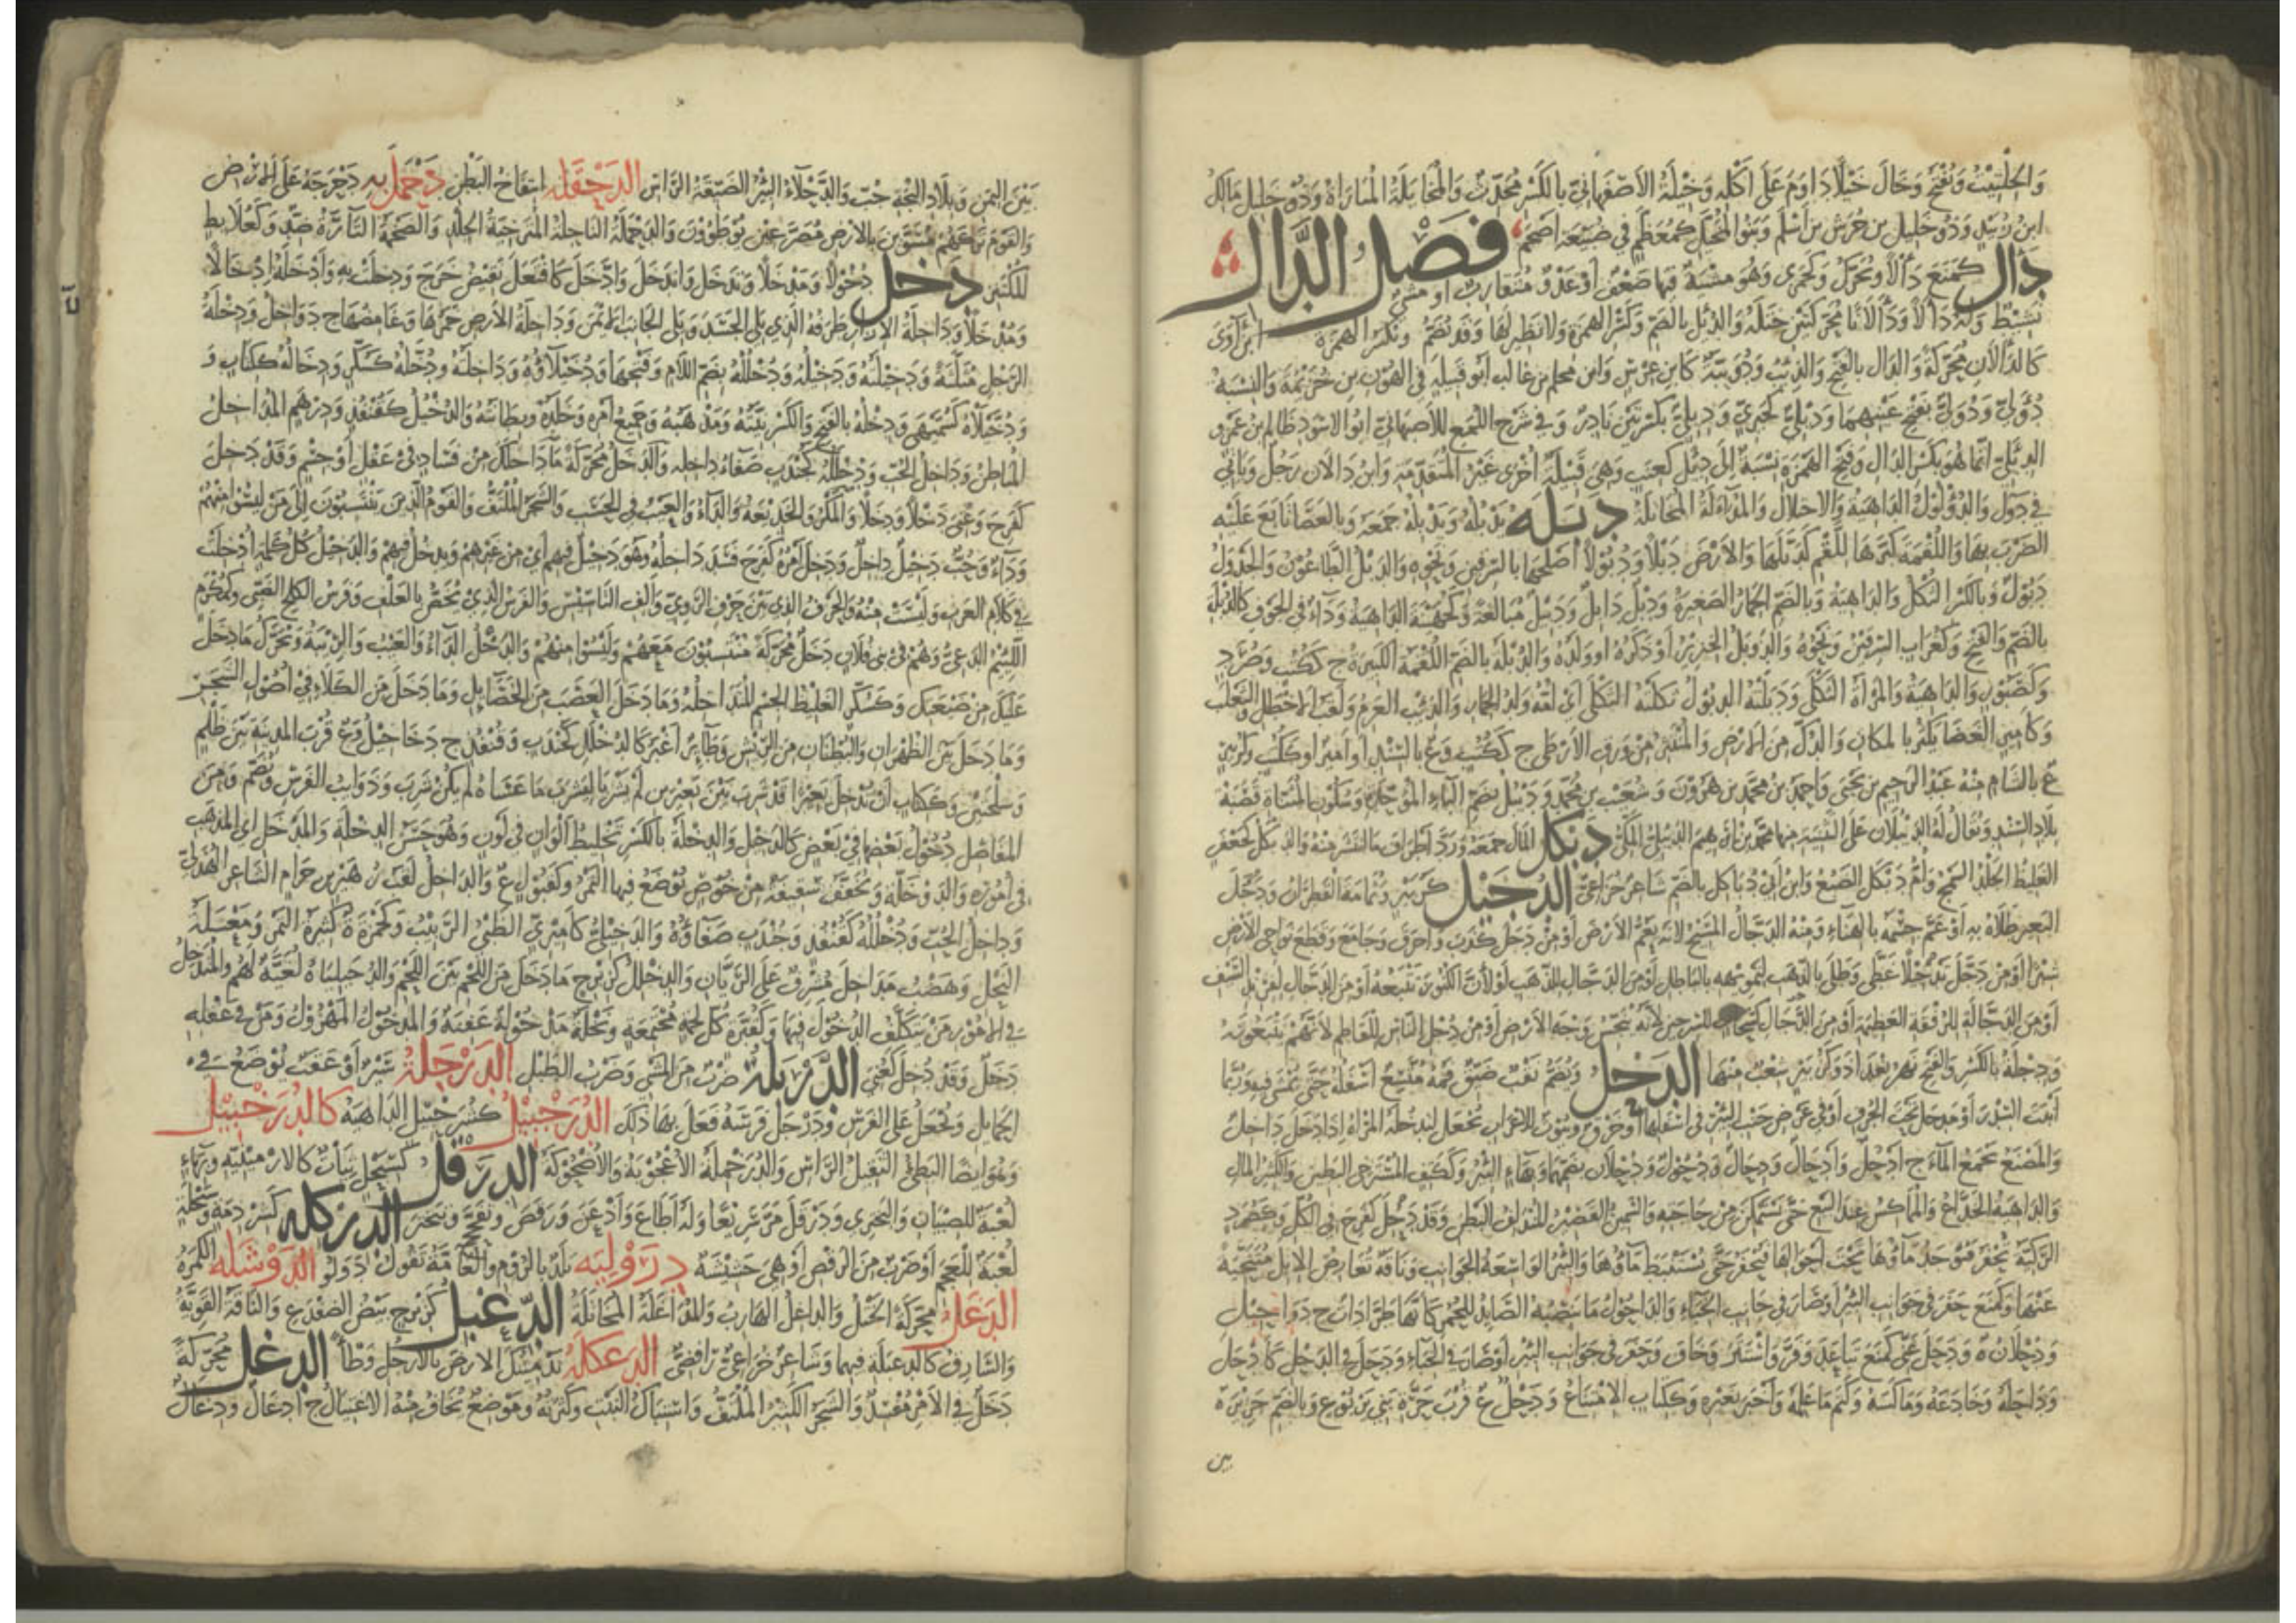 والحلتيت ويفتح وخال خيلا داوم على اكله وخيلة الاصفهاني بالكسر محدث والمخايلة المباراة وذو خليل مالك
ابن زبيد وذو خليل بن جرش بن اسلم وبنو المخيل كمعظم في ضبيعة اضجم
فصل الدال
دال كمنع دألا ويحرك وكجمزى وهو مشية فيها ضعف او عدو متقارب او مشي
نشيط وله دألا ودألانا محركتين ختله والدئل بالضم وكسر الهمزة ولا نظير لها وقد تضم وتكسر الهمزة ابن آوى
كالدألان محركة والدأل بالفتح والذئب ودويبة كابن عرس وابن محلم بن غالب ابو قبيلة في الهون بن خزيمة والنسبة
دؤلي ودولي بفتح عينهما وديلي كخيري ودئلي بكسرتين نادر وفي شرح اللمع للاصبهاني ابو الاسود ظالم بن عمرو
الدئلي انما هو بكسر الدال وفتح الهمزة نسبة الى دئل كعنب وهي قبيلة اخرى غير المتقدمة وابن دألان رجل وياتي
في دول والدؤلول الداهية والاختلال والمداءلة المخاتلة دبله يدبله ويدبله جمعه وبالعصا تابع عليه
الضرب بها واللقمة كبرها للقم كدبلها والارض دبلا ودبولا اصلحها بالسرقين ونحوه والدبل الطاعون والجدول
دبول وبالكسر الثكل والداهية وبالضم الحمار الصغير ودبل دابل ودبيل مبالغة وكجهينة الداهية وداء في الجوف كالدبلة
بالضم والفتح وكغراب السرقين ونحوه والدوبل الخنزير او ذكره او ولده والدبلة بالضم اللقمة الكبيرة ج ككتب وصرد
وكصبور الداهية والمراة الثكلى ودبلته الدبول ثكلته الثكلى اي امه وولد الحمار والذئب العرم ولقب الاخطل والثعلب
وكامير الغضا يكثر بالمكان والدك من الارض والمنثر من ورق الارطى ج ككتب وع بالسند او امير او كلب وكزبير
ع بالشام منه عبد الرحيم بن يحيى واحمد بن محمد بن هرون وشعيب بن محمد ودبيل بضم الباء الموحدة وسكون المثناة قصبة
بلاد السند ويقال له الديبلان على التثنية منها محمد بن ابرهيم الديبلي المكي دبكل المال جمعه ورد اطراف ما انتشر منه والدبكل كجعفر
الغليظ الجلد السمج وام دبكل الضبع وابن ابي دباكل بالضم شاعر خزاعي الدجيل كزبير وثمامة القطران ودجل
البعير طلاه به او عم جسمه بالهناء ومنه الدجال المسيح لانه يعم الارض او من دجل كذب واحرق وجامع وقطع نواحي الارض
سيرا او من دجل تدجيلا غطى وطلى بالذهب لتمويهه بالباطل او من الدجال للذهب او لان الكنوز تتبعه او من الدجال لفرند السيف
او من الدجالة للرفقة العظيمة او من الدجال كسحاب للسرجين لانه ينجس وجه الارض او من دجل الناس للقاطهم لانهم يتبعونه
ودجلة بالكسر والفتح نهر بغداد وكزبير شعب منها الدحل ويضم نقب ضيق فمه متسع اسفله حتى يمشى فيه وربما
انبت السدر او مدخل تحت الجرف او في عرض خشب البئر في اسفلها وخروق وبيوت الاعراب يجعل لتدخله المراة اذا دخل داخل
والمصنع يجمع الماء ج ادحل وادحال ودحال ودحول ودحلان بضمها وبهاء البئر وككتف المسترخي البطين والكثير المال
والداهية الخداع والماكس عند البيع حتى يستمكن من حاجته والسمين القصير المندلق البطن وقد دحل كفرح في الكل وكصبور
الركية تحفر فيوجد ماؤها تحت اجوالها فتحفر حتى يستنبط ماؤها والبئر الواسعة الجوانب وناقة تعارض الابل متنحية
عنها وكمنع حفر في جوانب البئر او صار في جانب الخباء والداحول ما ينصبه الصائد للحمر كانها طرادات ج دواحيل
ودحلان ة ودحل عني كمنع تباعد وفر واستتر وخاف وحفر في جوانب البئر او صار في الخباء ودخل في الدحل كادحل
وداحله وخادعه وماكسه وكتم ما علمه واخبر بغيره وككتاب الامتناع ودحل ع قرب حزن بني يربوع وبالضم جزيرة
بين
بين اليمن وبلاد البجة جنب والدحلاء البئر الضيقة الراس الدحقلة انتفاخ البطن دحمل به دحرجه على الارض
والقوم تركهم مسوين بالارض مصرعين يوطؤون والدحملة الناحلة المسترخية الجلد والضخمة التارة ضد وكعلابط
المكتنز دخل دخولا ومدخلا وتدخل واندخل وادخل كافتعل نقيض خرج ودخلت به وادخلته ادخالا
ومدخلا وداخلة الازار طرفه الذي يلي الجسد ويلي الجانب الايمن وداخلة الارض خمرها وغامضها ج دواخل ودخلة
الرجل مثلثة ودخيلته ودخيله ودخلله بضم اللام وفتحها ودخيلاؤه وداخلته ودخله كسكر ودخاله ككتاب و
ودخيلاه كسميهى ودخله بالفتح والكسر نيته ومذهبه وجميع امره وخلده وبطانته والدخلل كقنفذ ودرهم المداخل
المباطن وداخل الحب ودخلله كجندب صفاء داخله والدخل محركة ما داخلك من فساد في عقل او جسم وقد دخل
كفرح وعني دخلا ودخلا والمكر والخديعة والداء والعيب في الحسب والشجر الملتف والقوم الذين ينتسبون الى من ليسوا منهم
وداء وحب دخيل داخل ودخل امره كفرح فسد داخله وهو دخيل فيهم اي من غيرهم ويدخل فيهم والدخيل كل كلمة ادخلت
في كلام العرب وليست منه والحرف الذي بين حرف الروي والف التاسيس والفرس الذي يخص بالعلف وفرس الكلج الضبي وكمكرم
اللئيم الدعي وهم في بني فلان دخل محركة ينتسبون معهم وليسوا منهم والدخل الداء والعيب والريبة ويحرك وما دخل
عليك من ضيعتك وكسكر الغليظ الجسم المتداخله وما دخل العصب من الخصائل وما دخل من الكلا في اصول الشجر
وما دخل بين الظهران والبطنان من الريش وطائر اغبر كالدخلل كجندب وقنفذ ج دخاخيل وع قرب المدينة بين ظلم
وملحتين وككتاب ان تدخل بعيرا قد شرب بين بعيرين لم يشربا ليشرب ما عساه لم يكن شرب وذوايب الفرس ويضم ومن
المفاصل دخول بعضها في بعض كالدخل والدخلة بالكسر تخليط الوان في لون وهو حسن الدخلة والمدخل اي المذهب
في اموره والدوخلة ويخفف سفيفة من خوص توضع فيها التمر وكقبول ع والداخل لقب زهير بن حرام الشاعر الهذلي
وداخل الحب ودخلله كقنفذ وجندب صفاؤه والدخيلي كاميري الظبي الربيب وكحمزة ة كثيرة التمر ومعسلة
النحل وهضب مداخل مشرف على الريان والدخلل كزبرج ما دخل من اللحم بين اللحم والدخيلياء لعبة لهم والمتدخل
في الامور من يتكلف الدخول فيها وكقبرة كل لحمة مجتمعة ونخلة مدخولة عفنة والمدخول المهزول ومن في عقله
دخل وقد دخل كعني الدربلة ضرب من المشي وضرب الطبل الدرجلة سير او عقب يوضع في
الحمايل ويجعل على الفرس ودرجل فرسه فعل بها ذلك الدرخبيل كشرحبيل الداهية كالدرخبيل
وهو ايضا البطيء الثقيل الراس والدرخملة الاعجوبة والاضحوكة الدرقل كسبحل ثياب كالارمينية وبهاء
لعبة للصبيان والتبختر ودرقل مر سريعا وله اطاع واذعن ورقص وتفحج وتبختر الدركلة كشرذمة وسبحلة
لعبة للعجم او ضرب من الرقص او هي حبشية درولية بلد بالروم والعامة تقول دولو الدوشلة الكمرة
الدعل محركة الختل والداعل الهارب والمداعلة المخاتلة الدعبل كزبرج بيض الضفدع والناقة القوية
والشارف كالدعبلة فيهما وشاعر خزاعي رافضي الدعكلة تدميثك الارض بالارجل وطا الدغل محركة
دخل في الامر مفسد والشجر الكثير الملتف واشتباك النبت وكثرته وموضع يخاف منه الاغتيال ج ادغال ودغال